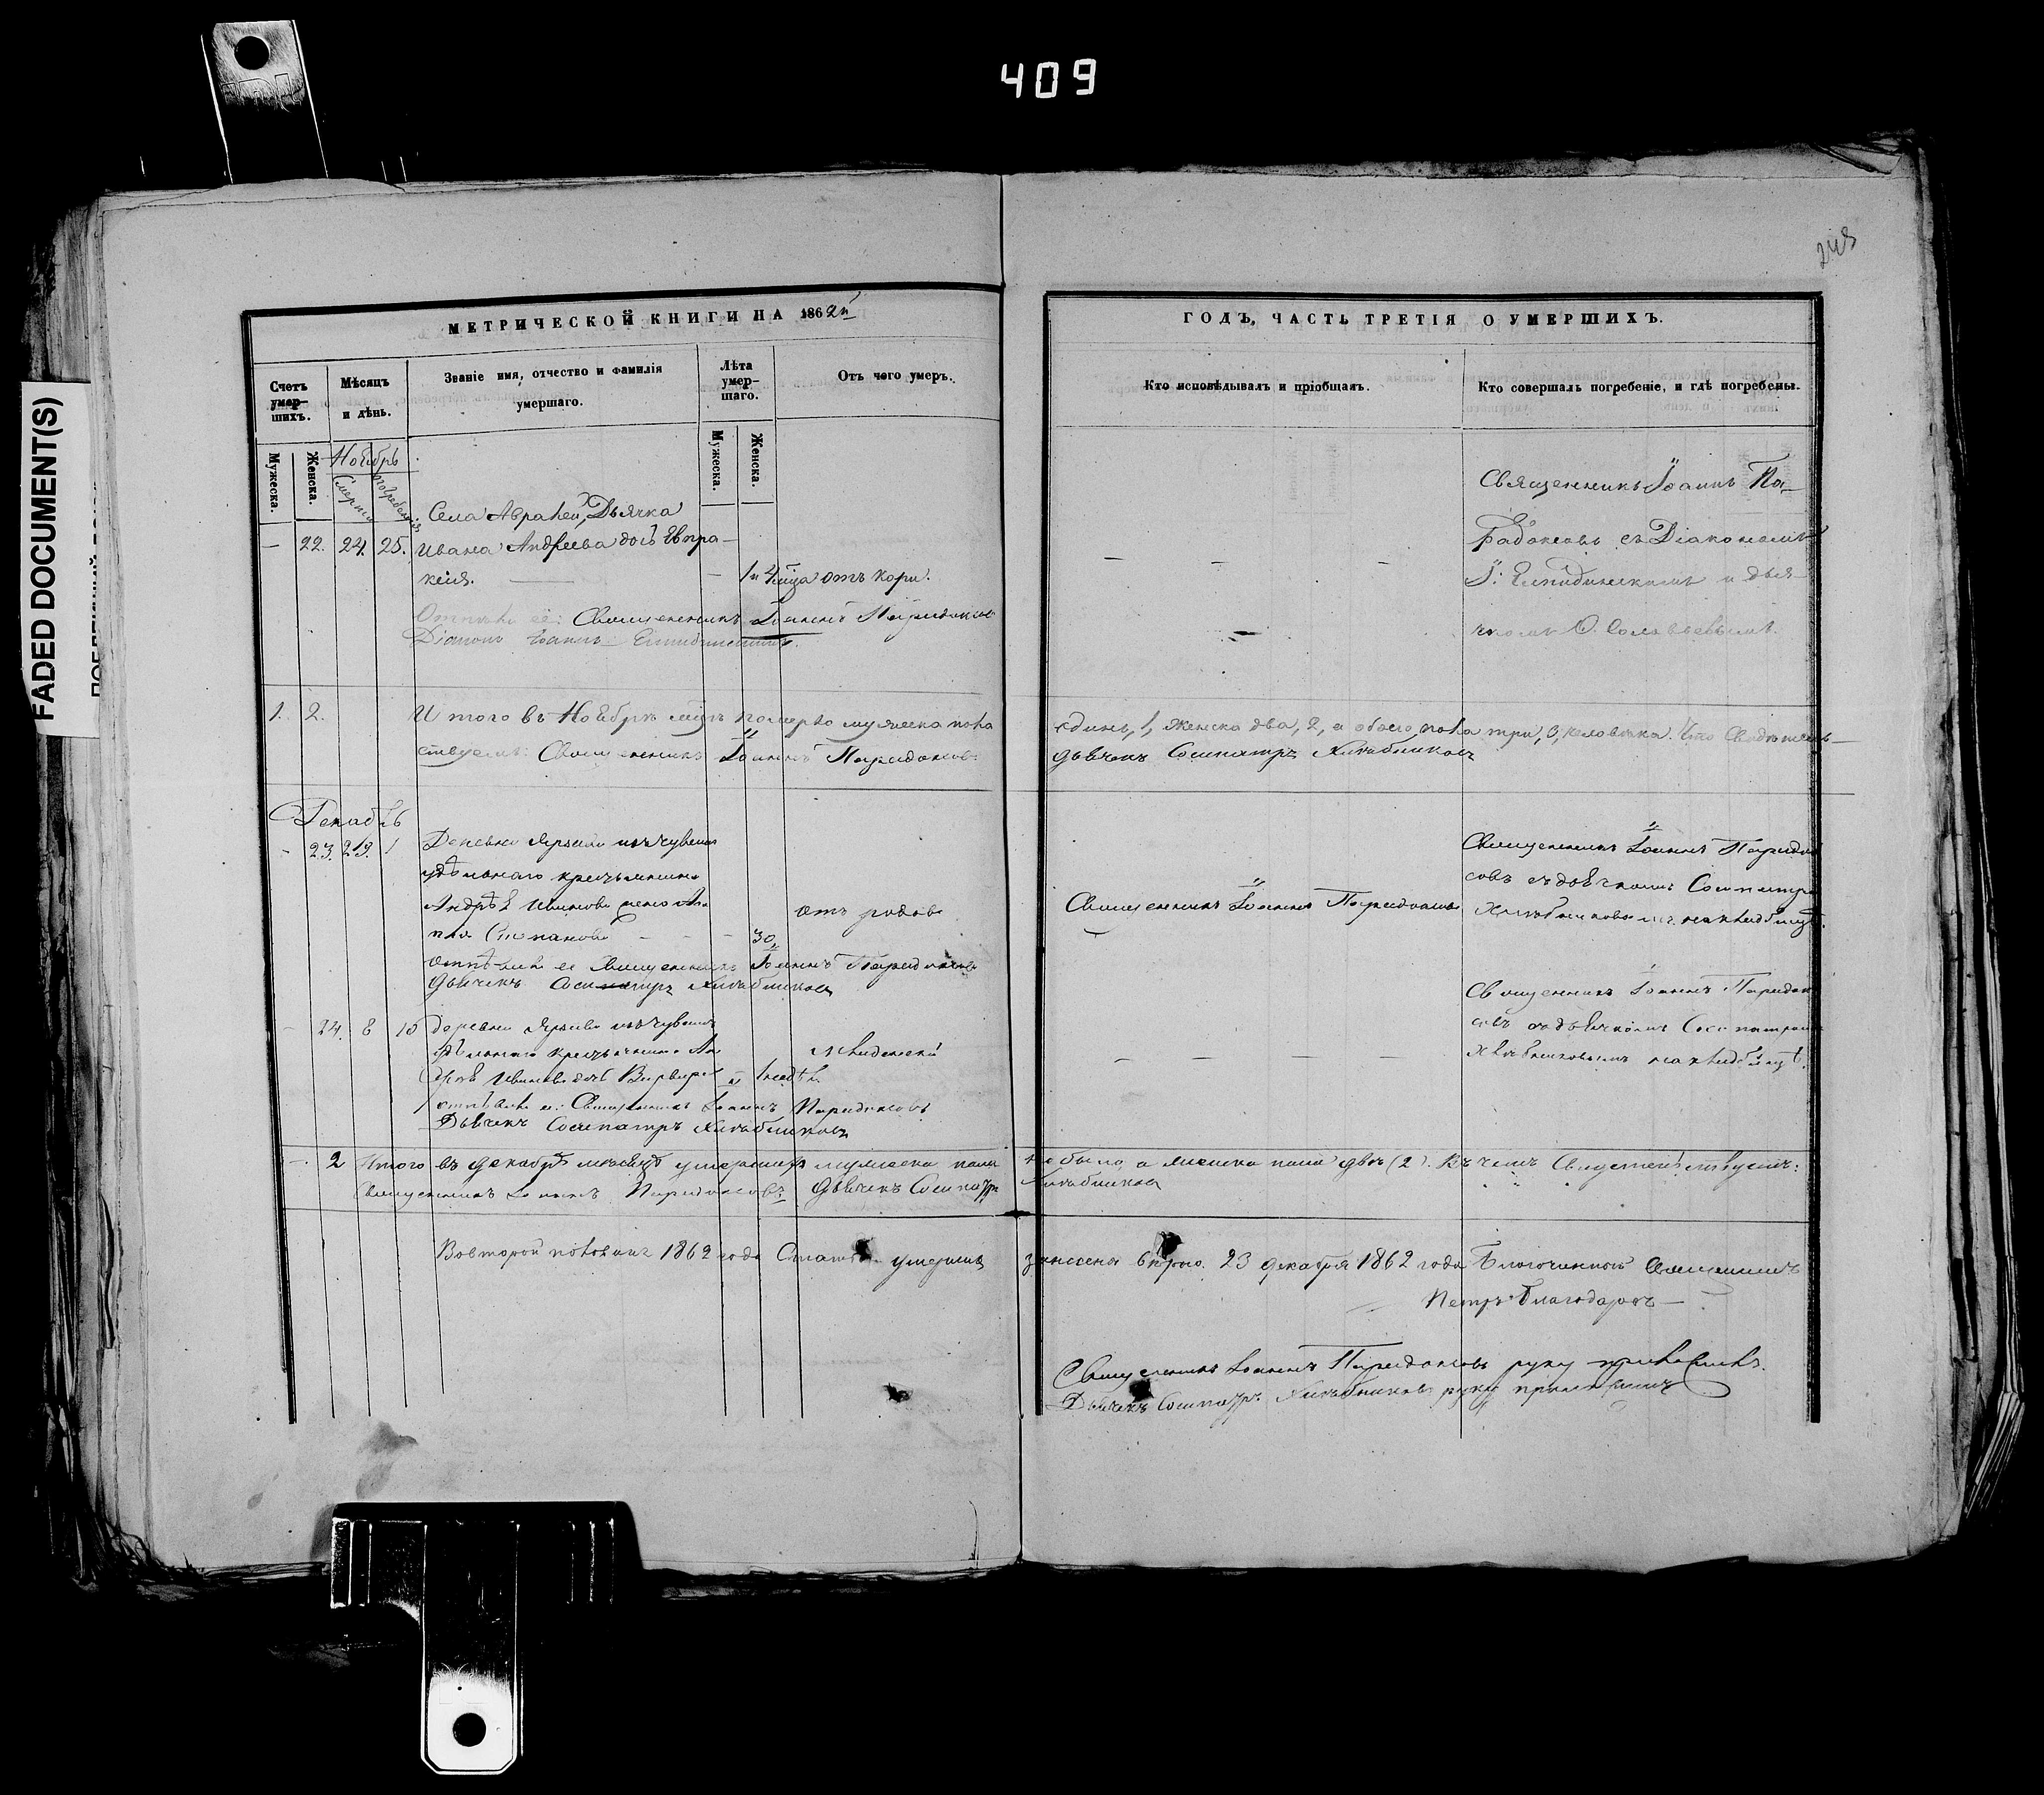 409
FADED DOCUMENT(S)
243
МЕТРИЧЕСКОЙ КНИГИ НА 1862й
Счетъ умер-шихъ.
Мѣсяцъ и дѣнь.
Званіе имя, отчество и фамилія умершаго.
Лѣта умер-шаго.
Отъ чего умеръ.
Мужеска.
Женска.
Ноябрь
Смерти
погребенія
Мужеска.
Женска.
Села Абралей, Дьячка
— 22. 24. 25. Ивана Андреева дочь Евпра-
ксія. — 1 и 4 мца отъ кори.
Отпѣли её: Священникъ Іоаннъ
Діаконъ Іоаннъ Елпидинскій.
1. 2. Итого въ Ноябрѣ мцѣ померло мужеска пола
ствуемъ: Священникъ Іоаннъ
Декабрь
- 23. 29. 1 Деревни изъ чувашъ
удѣльнаго крестьянина
Андрея Иванова жена
Степанова — — — 30 отъ родовъ
отпѣвали ее Священникъ Іоаннъ
Дьячекъ Сосипатръ Хлѣбниковъ
- 24. 8 10 деревни изъ чувашъ
удѣльнаго крестьянина Ан
Иванова дочь Варвара 1 недѣл. младенской
отпѣвали ее: Священникъ Іоаннъ
Дьячекъ Сосипатръ Хлѣбниковъ
—. 2 Итого въ декабрѣ мѣсяцѣ умершихъ мужеска пола
Священникъ Іоаннъ Дьячекъ Сосипатръ
Во второй половинѣ 1862 года Статья умершихъ
ГОДЪ, ЧАСТЬ ТРЕТІЯ О УМЕРШИХЪ.
Кто исповѣдывалъ и пріобщалъ.
Кто совершалъ погребеніе, и гдѣ погребены.
Священникъ Іоаннъ
съ Діакономъ
І: Елпидинскимъ и дья-
чкомъ Ѳ. Соловьевымъ.
единъ, 1, женска два, 2, а обоего пола три, 3, человѣка. Что Свидѣтель-
дьячекъ Сосипатръ Хлѣбниковъ
Священникъ Іоаннъ
Священникъ Іоаннъ
совъ съ дьячкомъ Сосипатро
Хлѣбниковымъ на кладбищѣ.
Священникъ Іоаннъ
совъ съ дьячкомъ Сосипатром
Хлѣбниковымъ на кладбищѣ.
не было, а женска пола двѣ (2). Въ чемъ Свидетельствуемъ:
Хлѣбниковъ
23 декабря 1862 года Благочинный Священникъ
Петръ Благодаровъ —
Священникъ Іоаннъ руку приложилъ.
Дьячекъ Сосипатръ Хлѣбниковъ руку приложилъ